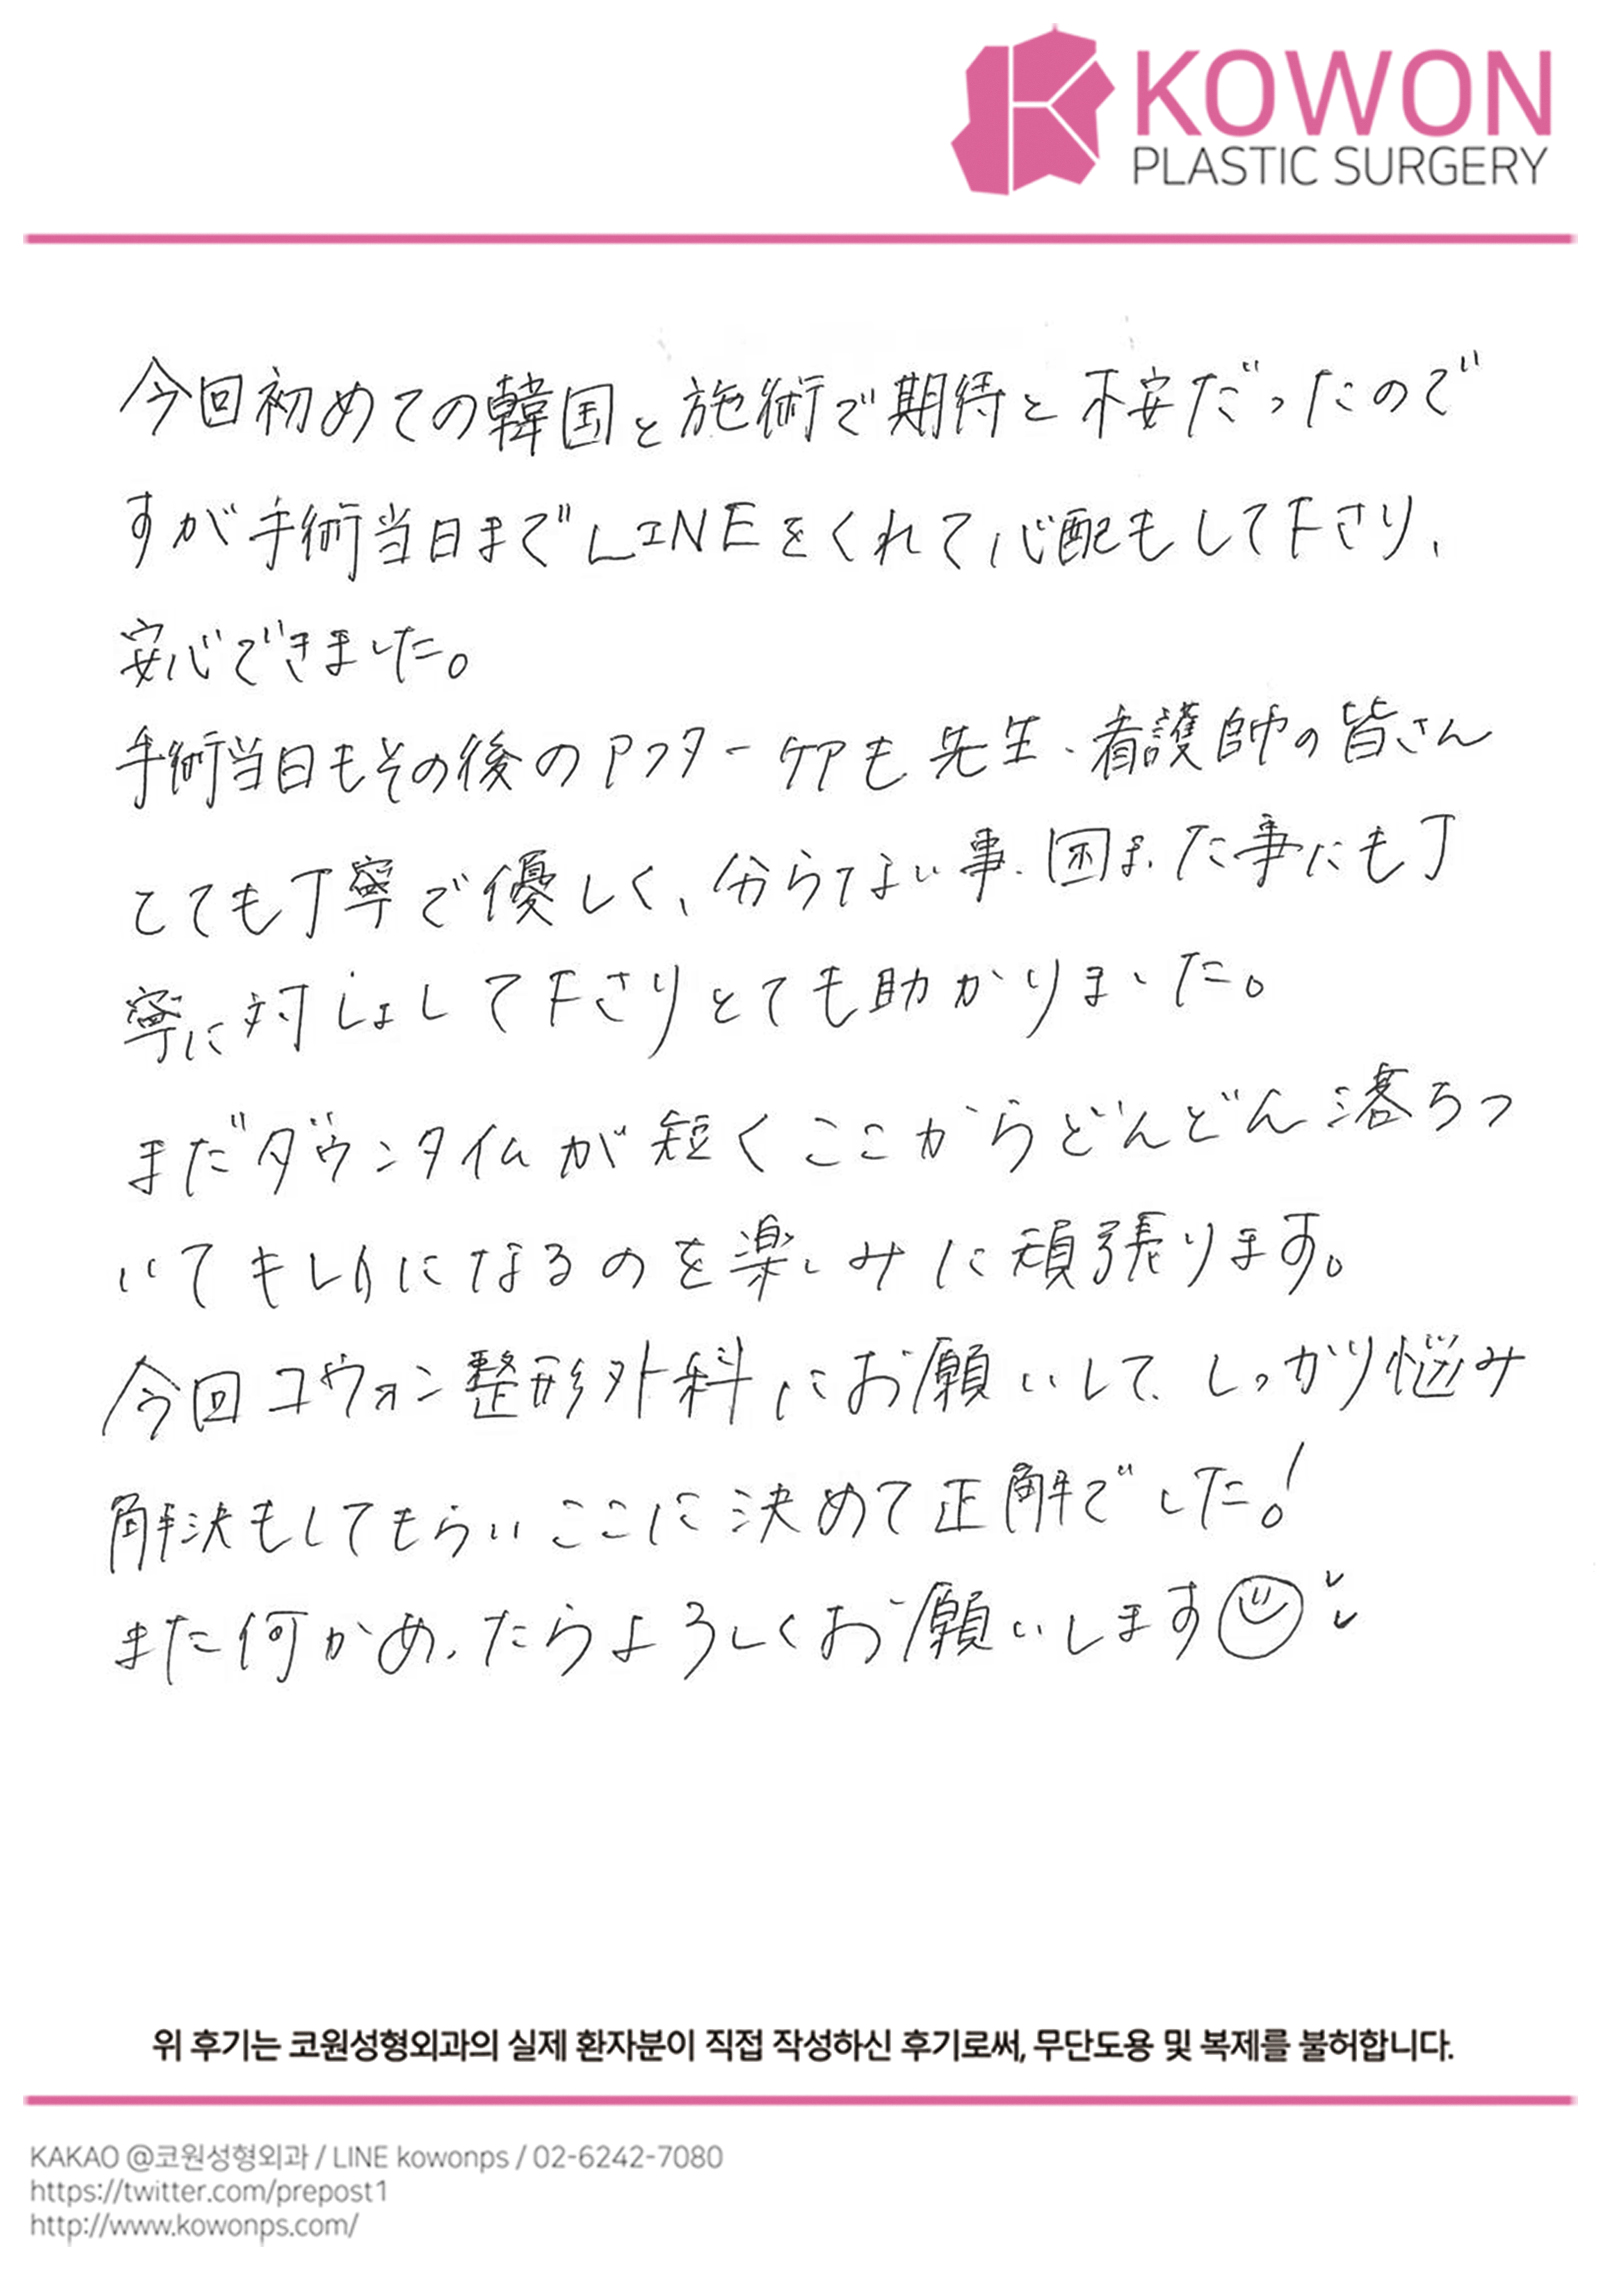 KOWON
PLASTIC SURGERY
今回初めての韓国と施術で期待と不安だったので
すが手術当日までLINEをくれて心配もして下さり、
安心できました。
手術当日もその後のアフターケアも先生・看護師の皆さん
とても丁寧で優しく、分らない事、困まった事にも丁
寧に対しょして下さりとても助かりました。
まだダウンタイムが短くここからどんどん落ちつ
いてキレイになるのを楽しみに頑張ります。
今回コウォン整形外科にお願いして、しっかり悩み
解決もしてもらいここに決めて正解でした。!
また何かあったらよろしくお願いします
위 후기는 코원성형외과의 실제 환자분이 직접 작성하신 후기로써, 무단도용 및 복제를 불허합니다.
KAKAO @코원성형외과 / LINE kowonps / 02-6242-7080
https://twitter.com/prepost1
http://www.kowonps.com/